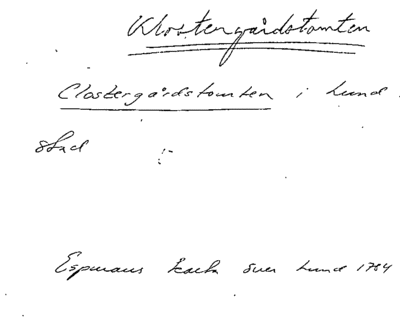 Klostergårdstomten
Clostergårdstomten i Lund
stad :-
Espmans karta över Lund 1784